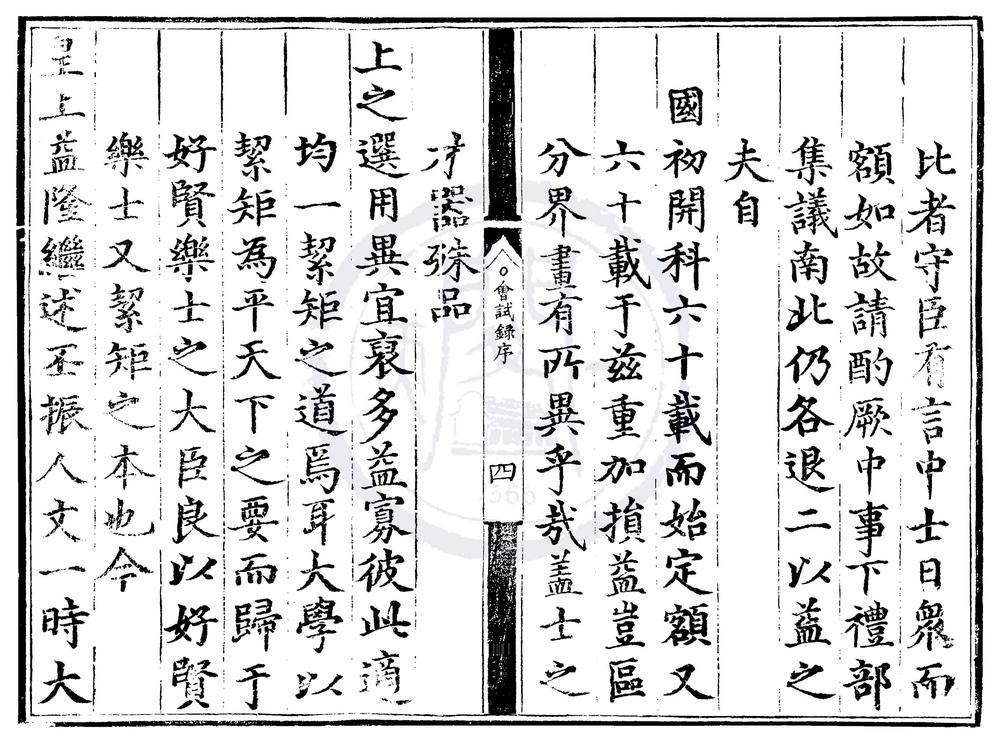 比者守臣有言中士日衆而
額如故請酌厥中事下禮部
集議南北仍各退二以益之
夫自
國初開科六十載而始定額又
六十載于兹重加損益豈區
分界畫有所異乎哉盖士之
會試録序
四
才器殊品
上之選用異宜裒多益寡彼此適
均一絜矩之道焉耳大學以
絜矩為平天下之要而歸于
好賢樂士之大臣良以好賢
樂士又絜矩之本也今
皇上益隆繼述丕振人文一時大